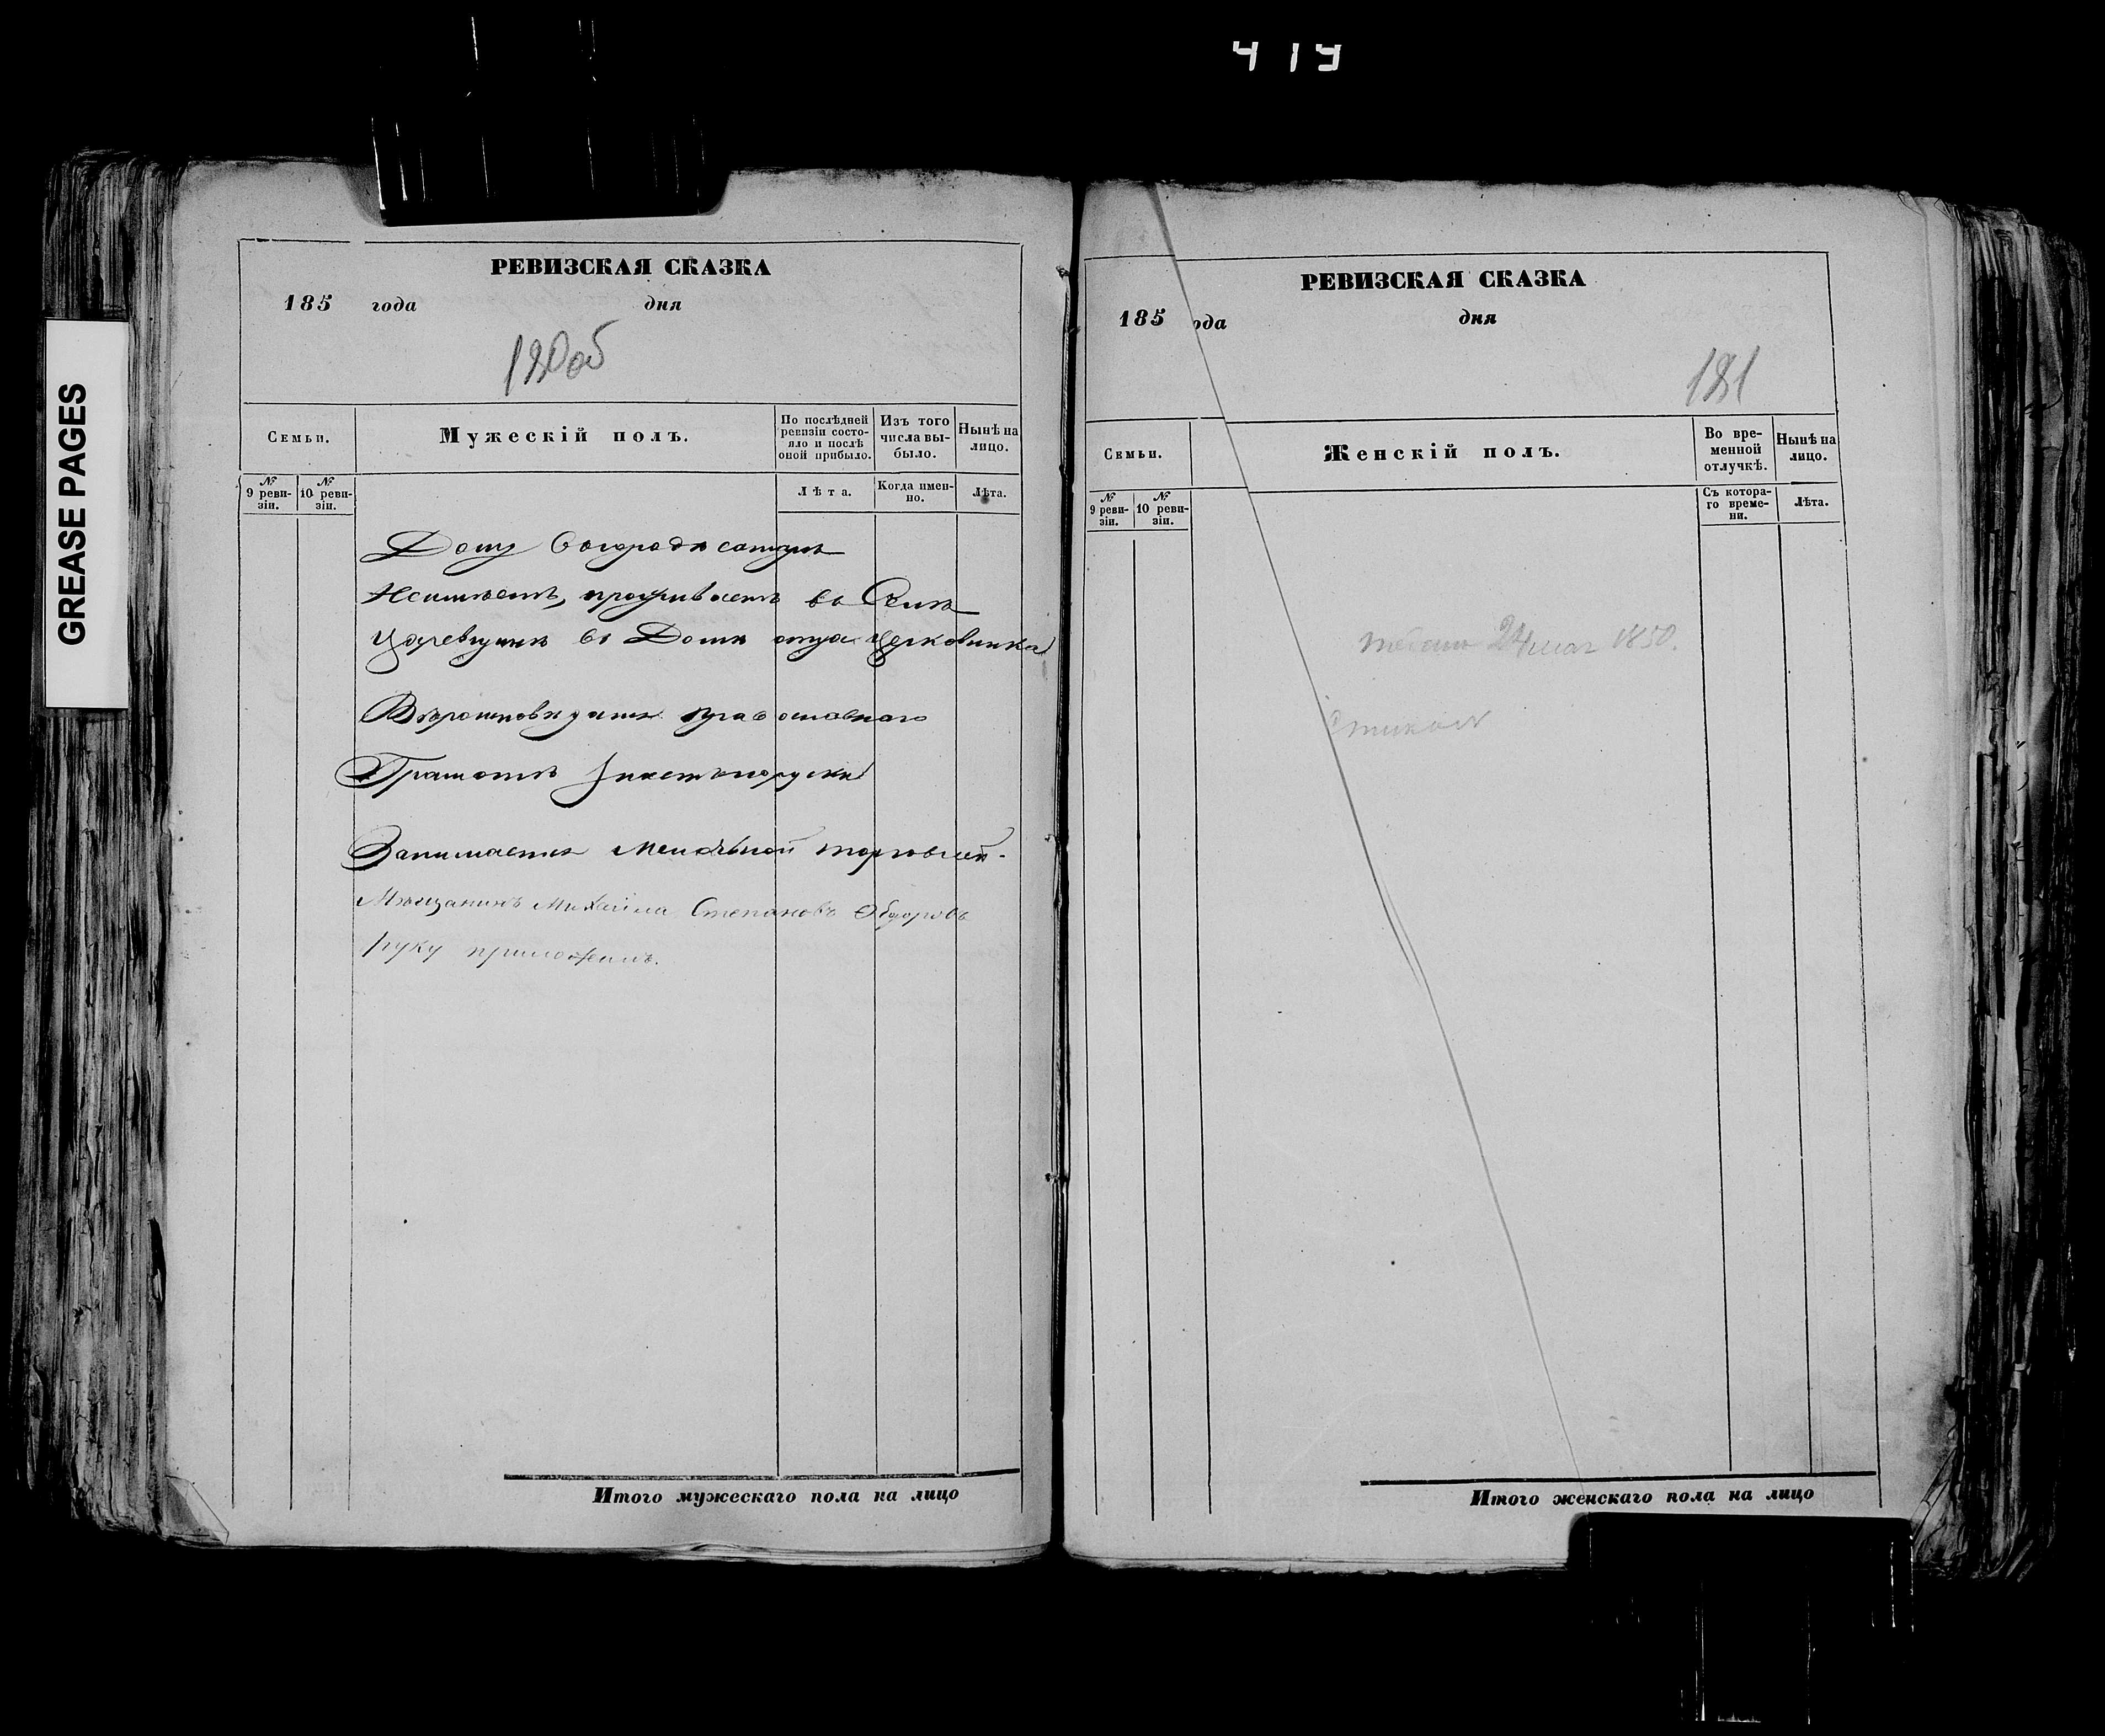 419
GREASE PAGES
РЕВИЗСКАЯ СКАЗКА
185 года дня
180об
Семьи.
Мужескій полъ.
По послѣдней ревизіи состояло и послѣ оной прибыло.
Изъ того числа выбыло.
Нынѣ на лицо.
№ 9 ревизіи.
№ 10 ревизіи.
Лѣта.
Когда именно.
Лѣта.
Дому въ городѣ
Неимѣетъ, проживаетъ въ Селѣ
въ Домѣ отца
Вѣроисповѣданія православнаго
Грамотѣ
Занимается мелочной торговлей.
Мѣщанинъ Михайла Степановъ
руку приложилъ.
Итого мужескаго пола на лицо
РЕВИЗСКАЯ СКАЗКА
185 ода дня
181
Семьи.
Женскій полъ.
Во временной отлучкѣ.
Нынѣ на лицо.
№ 9 ревизіи.
№ 10 ревизіи.
Съ котораго времени.
Лѣта.
24 мая 1850.
Итого женскаго пола на лицо